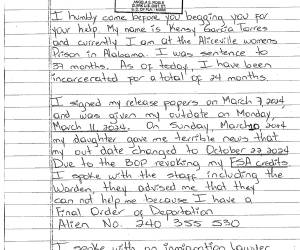 ANGELA E. NOBLE
CLERK U.S. DIST. CT.
I humbly come before you begging you for
your help. My name is Kensy Garcia Torres
and currently I am at the Aliceville womens
Prison in Alabama. I was sentence to
37 months. As of today, I have been
incarcerated for a total of 24 months.
I signed my release papers on March 7, 2024
and was given my outdate on Monday,
March 11, 2024. On Sunday, March 10, 2024
my daughter gave me terrible news that
my out date changed to October 27, 2024
Due to the BOP revoking my FSA credits.
I spoke with the staff including the
Warden, they advised me that they
can not help me because I have a
Final Order of Deportation
Alien No. 240 355 530
I spoke with an immigration lawyer